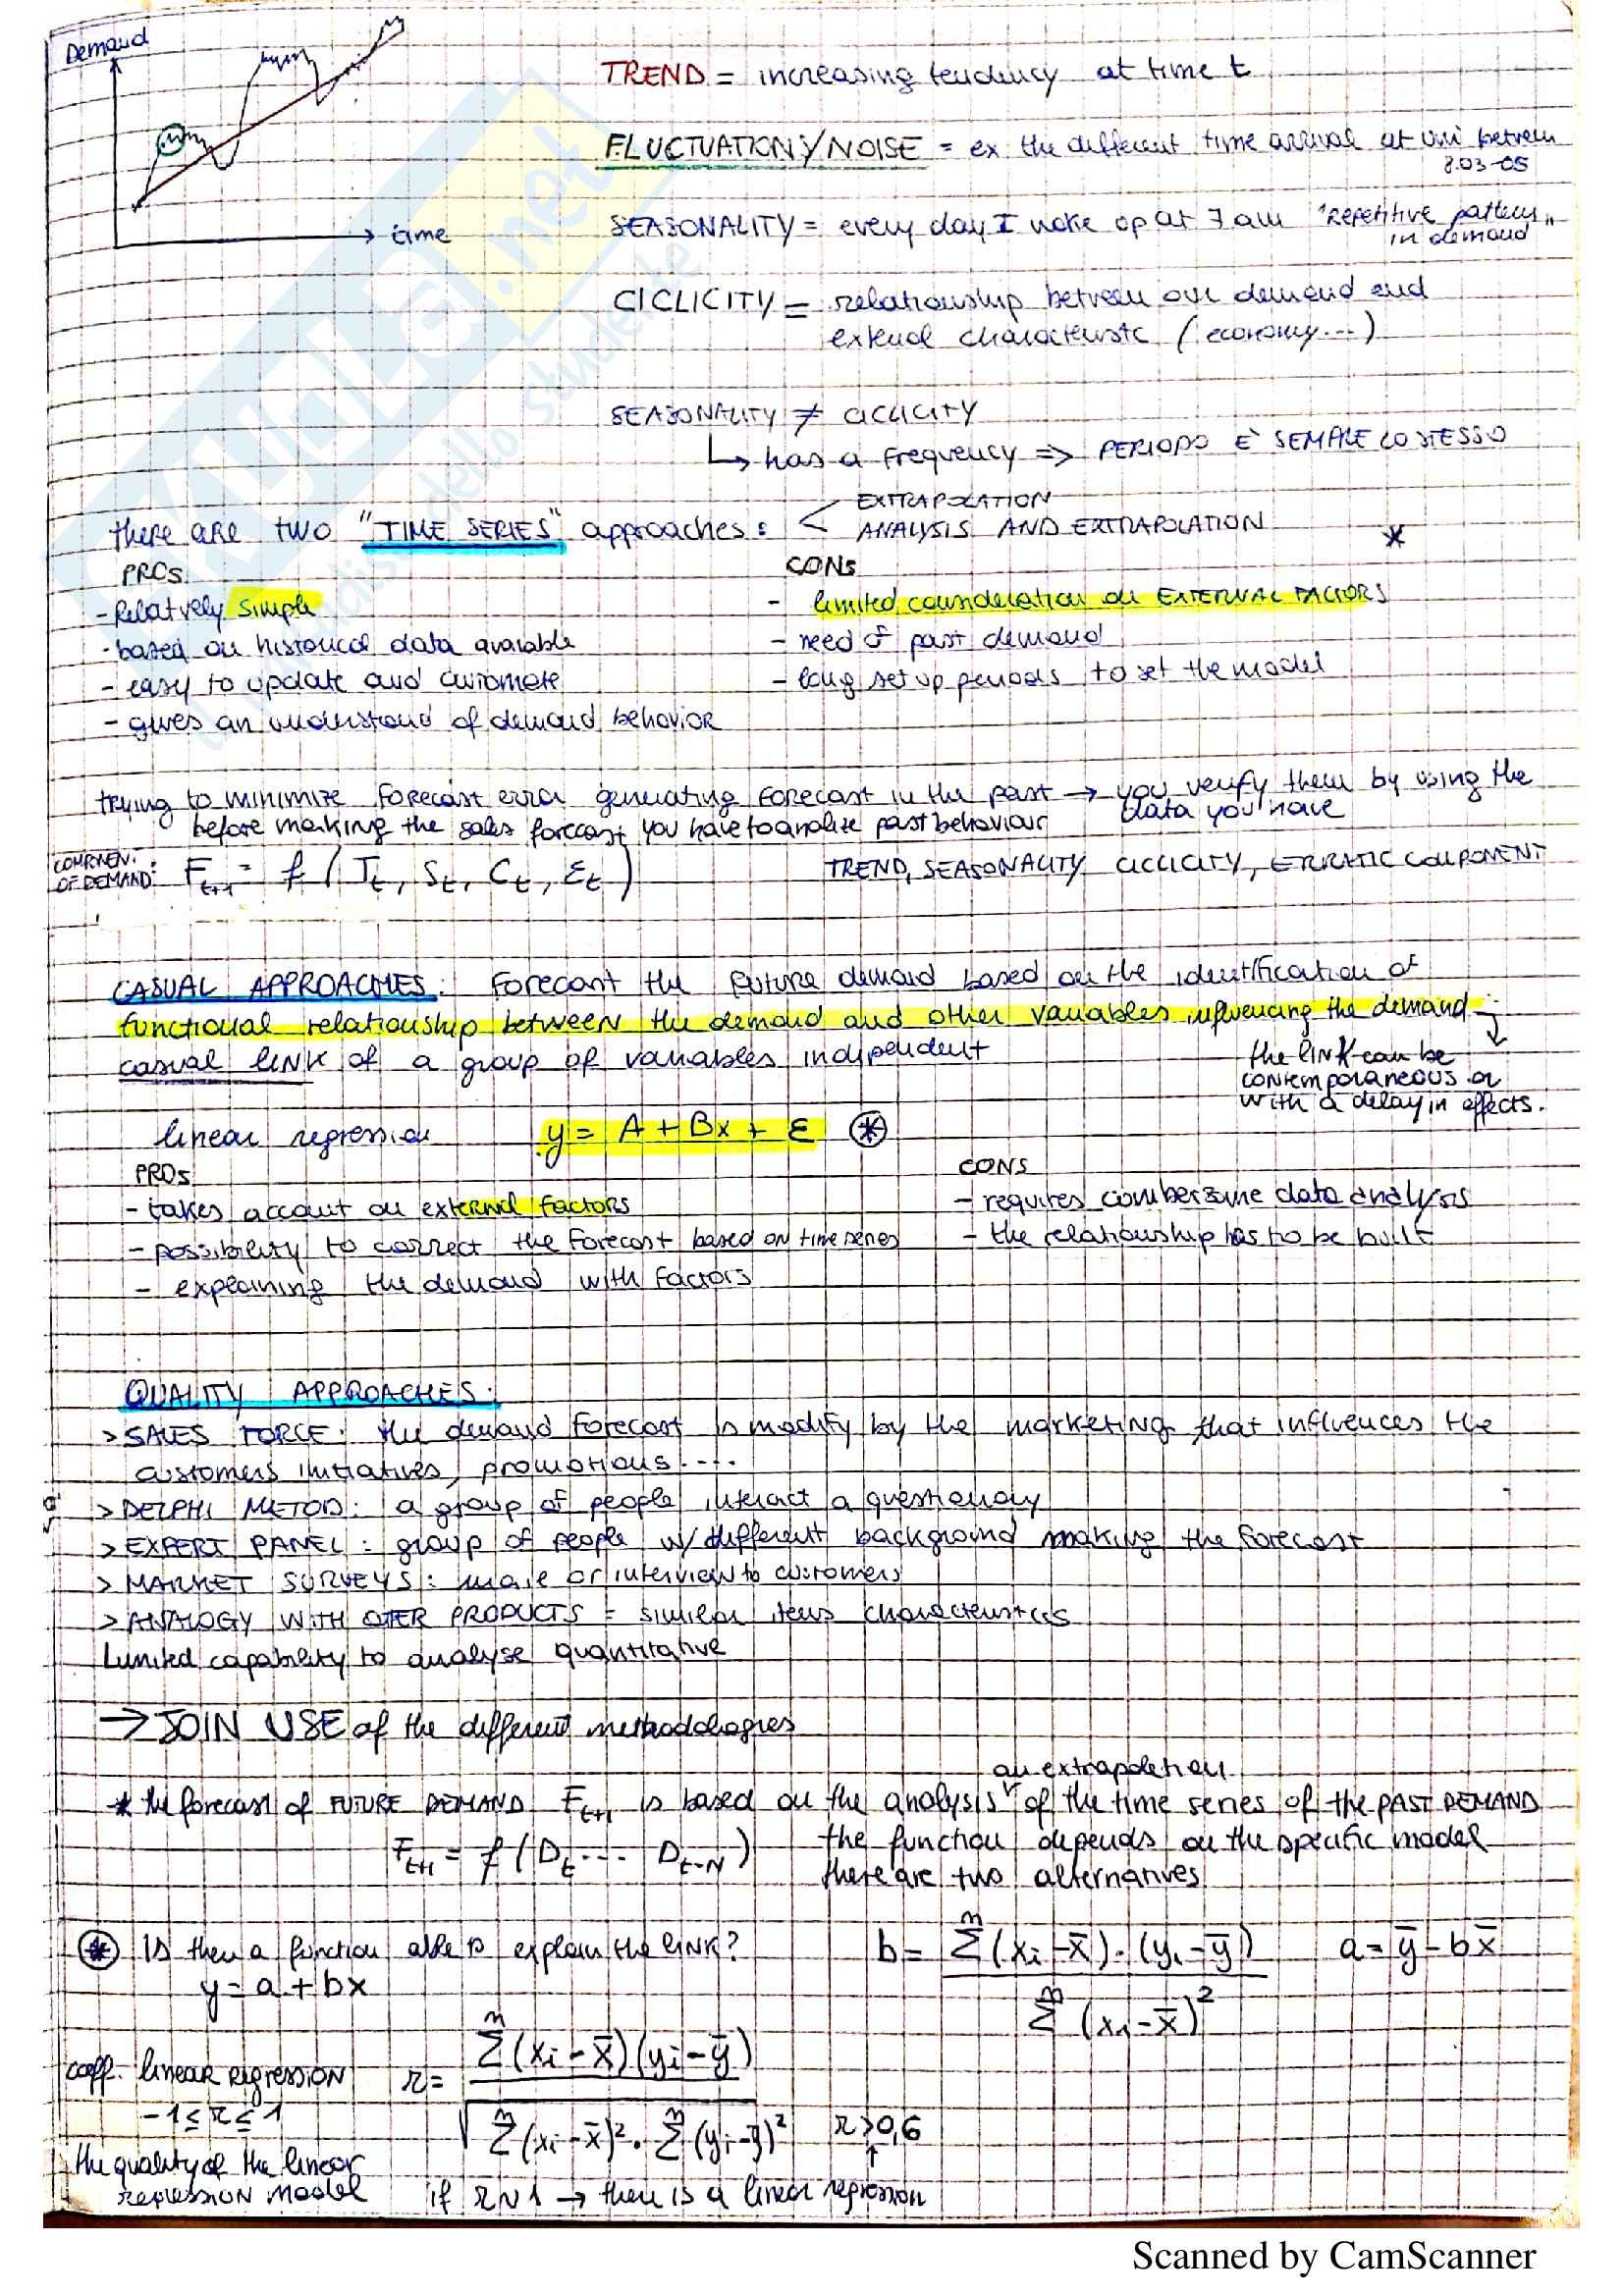 Demand
time
TREND = increasing tendency at time t
FLUCTUATION/NOISE = ex the different time arrival at uni between
8.03-05
SEASONALITY = every day I wake up at 7 am "Repetitive pattern"
in demand
CICLICITY = relationship between our demand and
external characteristic (economy...)
SEASONALITY ≠ CICLICITY
↳ has a frequency ⇒ PERIODO E' SEMPRE LO STESSO
there are two "TIME SERIES" approaches: < EXTRAPOLATION
ANALYSIS AND EXTRAPOLATION *
PROs
CONs
- Relatively simple
- limited consideration on EXTERNAL FACTORS
- based on historical data available
- need of past demand
- easy to update and automate
- long set up periods to set the model
- gives an understand of demand behavior
trying to minimize forecast error generating forecast in the past → you verify them by using the
data you have
before making the sales forecast you have to analize past behaviour
COMPONENT
OF DEMAND: Ft+1 = f (Tt, St, Ct, Εt)
TREND, SEASONALITY, CICLICITY, ERRATIC COMPONENT
CASUAL APPROACHES: Forecast the future demand based on the identification of
functional relationship between the demand and other variables influencing the demand
casual link of a group of variables indipendent
the link can be
contemporaneous or
with a delay in effects.
linear regression y = A + Bx + ε ⊛
PROs
CONS
- takes account on external factors
- requires combersome data analysis
- possibility to correct the forecast based on time series
- the relationship has to be built
- explaining the demand with factors
QUALITY APPROACHES:
> SALES FORCE: the demand forecast is modify by the marketing that influences the
customers initiatives, promotions....
> DELPHI METOD: a group of people interact a questionary
> EXPERT PANEL: group of people w/ different background making the forecast
> MARKET SURVEYS: or interview to customers
> ANALOGY WITH OTER PRODUCTS = similar items characteristics
Limited capability to analyse quantitative
→ JOIN USE of the different methodologies
an extrapolation
* the forecast of FUTURE DEMAND Ft+1 is based on the analysis of the time series of the PAST DEMAND
Ft+1 = f (Dt ... Dt-N)
the function depends on the specific model
there are two alternatives
⊛ Is then a function able to explain the link?
y = a + bx
b = Σⁿ(xi - x̄)·(yi - ȳ) / Σⁿ(xi - x̄)²
a = ȳ - bx̄
coeff. linear regression
-1 ≤ r ≤ 1
r = Σⁿ(xi - x̄)(yi - ȳ) / √Σⁿ(xi - x̄)² · Σⁿ(yi - ȳ)²
r > 0,6
the quality of the linear
regression model
if r ~ 1 → there is a linear regression
Scanned by CamScanner